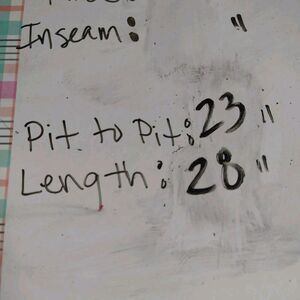 Inseam: "
Pit to Pit: 23 "
Length: 28 "